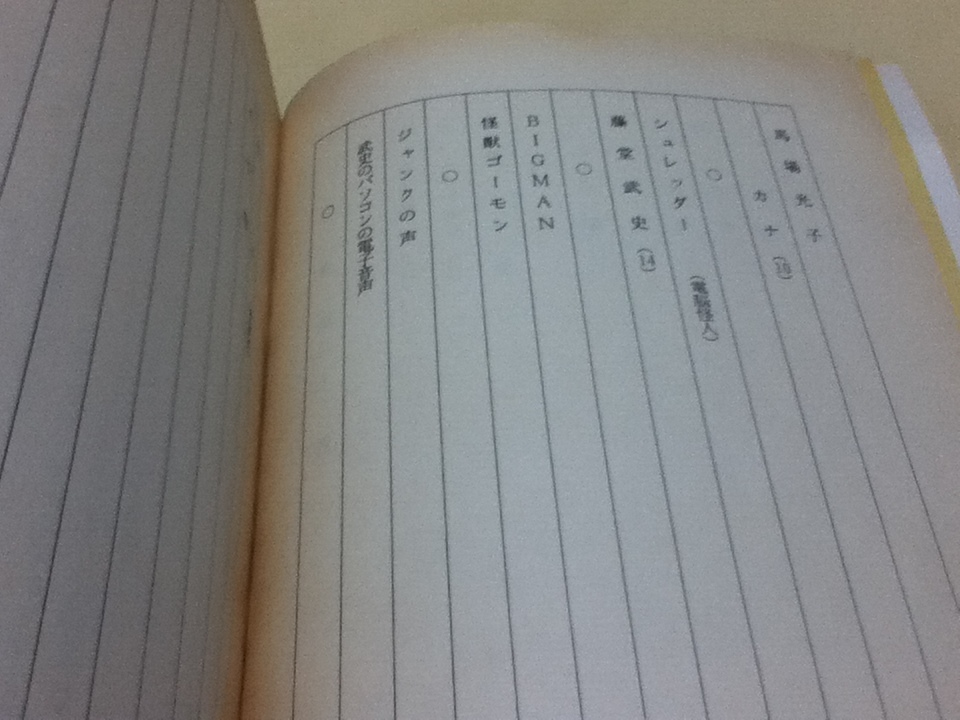 馬場光子
カナ(10)
○
シュレッダー(電脳怪人)
藤堂武史(14)
○
BIGMAN
怪獣ゴーモン
○
ジャンクの声
武史のパソコンの電子音声
○